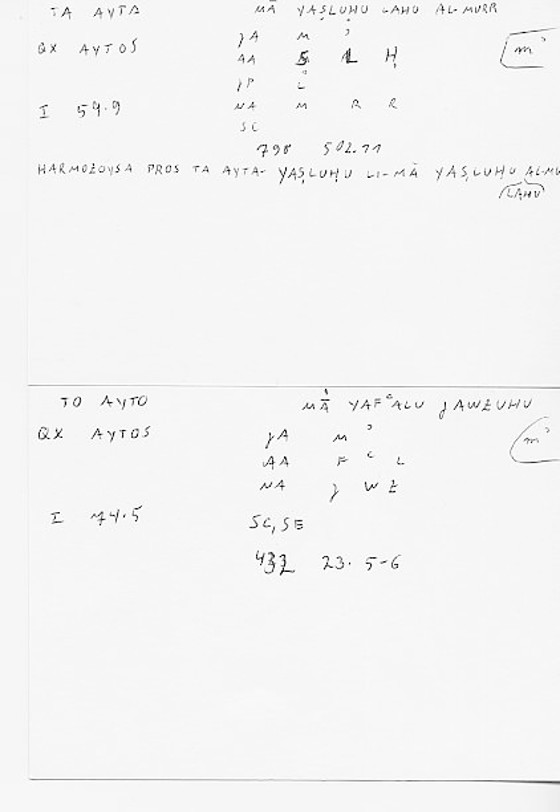 TA AYTA MĀ YAṢLUḤU LAHU AL-MURR
QX AYTOS JA M ʾ mʾ
AA Ṣ L Ḥ
JP L
I 59.9 NA M R R
SC
798 502.11
HARMOZOYSA PROS TA AYTA- YAṢLUḤU LI-MĀ YAṢLUḤU AL-MU
LAHU
TO AYTO MĀ YAFʿALU JAWZUHU
QX AYTOS JA M ʾ mʾ
AA F ʿ L
NA J W Z
I 74.5 SC, SE
432 23. 5-6